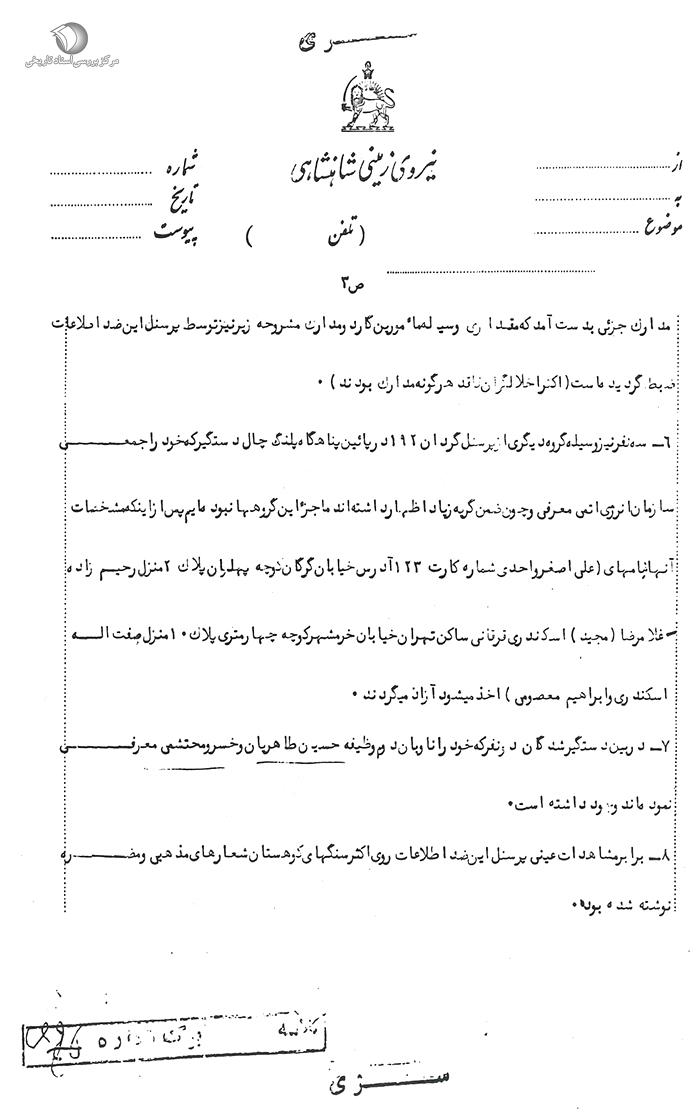 مرکز بررسی اسناد تاریخی
سری
نیروی زمینی شاهنشاهی
از
به
موضوع
شماره
تاریخ
پیوست
(تلفن )
ص۳
مدارک جزئی بدست آمد که مقداری وسیله مأمورین گارد و مدارک مشروحه زیر نیز توسط پرسنل این ضد اطلاعات
ضبط گردیده است (اکثر اخلالگران فاقد هرگونه مدارک بودند) .
۶ـ سه نفر نیز وسیله گروه دیگری از پرسنل گردان ۱۹۲ در پائین پناهگاه پلنگ چال دستگیر که خود را جمعی
سازمان انرژی اتمی معرفی و چون ضمن گریه زیاد اظهار داشته اند ما جزء این گروهها نبوده ایم پس از اینکه مشخصات
آنها بنامهای (علی اصغر واحدی شماره کارت ۱۲۳ آدرس خیابان گرگان کوچه پهلوان پلاک ۲ منزل رحیم زاده
غلامرضا (مجید) اسکندری ساکن تهران خیابان خرمشهر کوچه چهارمتری پلاک ۱۰ منزل صفت اله
اسکندری و ابراهیم معصومی) اخذ میشود آزاد میگردند .
۷ـ در بین دستگیرشدگان دو نفر که خود را ناوبان دوم وظیفه حسین طاهریان و خسرو محتشمی معرفی
نموده اند وجود داشته است.
۸ـ برابر مشاهدات عینی پرسنل این ضد اطلاعات روی اکثر سنگهای کوهستان شعارهای مذهبی و مضره
نوشته شده بود.
اداره
سری